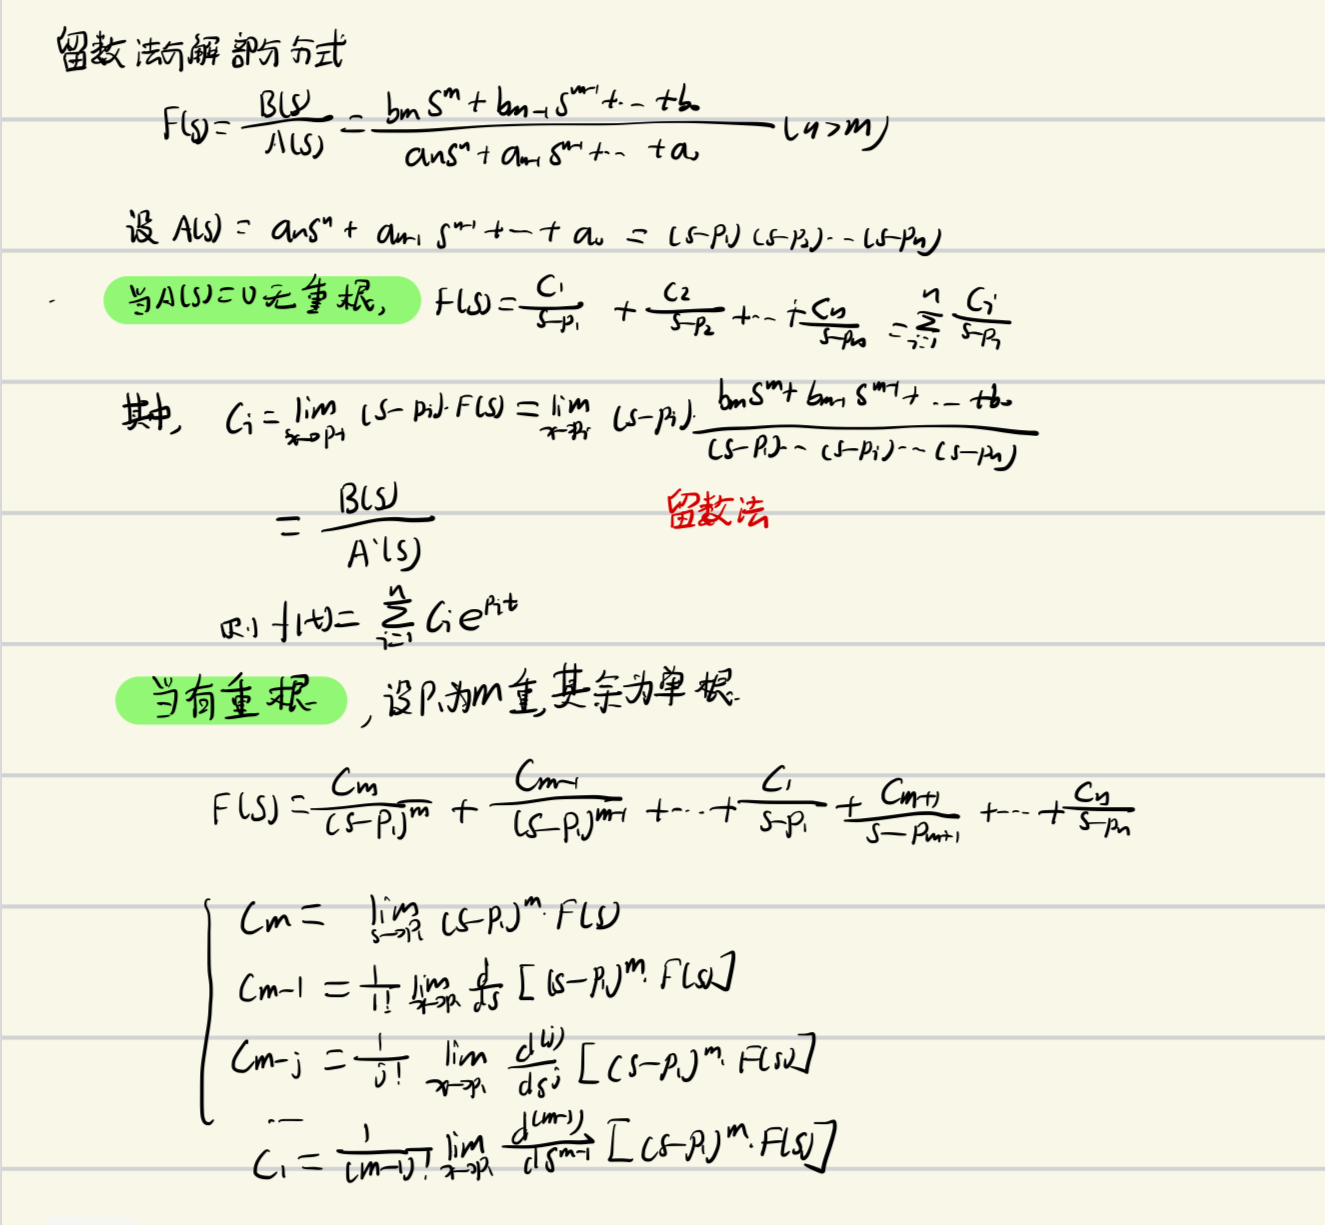 留数法分解部分分式
F(s)=B(s)/A(s)=(bₘsᵐ+bₘ₋₁sᵐ⁻¹+…+b₀)/(aₙsⁿ+aₙ₋₁sⁿ⁻¹+…+a₀) (n>m)
设 A(s)=aₙsⁿ+aₙ₋₁sⁿ⁻¹+…+a₀=(s-p₁)(s-p₂)…(s-pₙ)
当A(s)=0无重根, F(s)=C₁/(s-p₁)+C₂/(s-p₂)+…+Cₙ/(s-pₙ)=∑ⁿᵢ₌₁ Cᵢ/(s-pᵢ)
其中, Cᵢ=lim x→pᵢ (s-pᵢ)·F(s)=lim x→pᵢ (s-pᵢ)·(bₘsᵐ+bₘ₋₁sᵐ⁻¹+…+b₀)/((s-p₁)…(s-pᵢ)…(s-pₙ))
=B(s)/A'(s) 留数法
则 f(t)=∑ⁿᵢ₌₁ Cᵢe^(pᵢt)
当有重根, 设p₁为m重,其余为单根.
F(s)=Cₘ/(s-p₁)ᵐ+Cₘ₋₁/(s-p₁)ᵐ⁻¹+…+C₁/(s-p₁)+Cₘ₊₁/(s-pₘ₊₁)+…+Cₙ/(s-pₙ)
Cₘ=lim s→p₁ (s-p₁)ᵐ·F(s)
Cm-1=1/1! lim x→p₁ d/ds[(s-p₁)ᵐ·F(s)]
Cm-j=1/j! lim x→p₁ d^(j)/dsʲ[(s-p₁)ᵐ·F(s)]
…
C₁=1/(m-1)! lim x→p₁ d^(m-1)/dsᵐ⁻¹[(s-p₁)ᵐ·F(s)]